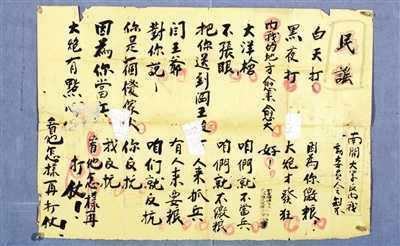 民謠
白天打
黑夜打
內我的地方
大洋槍
不張眼
把你送到閻王
閻王爺
對你說
你是一個傻傢伙
因為你當兵
大炮有點心
因為你繳糧
大炮才發狂
好！
咱們就不當兵
咱們就不繳糧
人來抓兵
有人來要糧
咱們就反抗
你反抗
我反抗
看他怎樣再
打仗！
看他怎樣再打仗！
南開大學反內戰